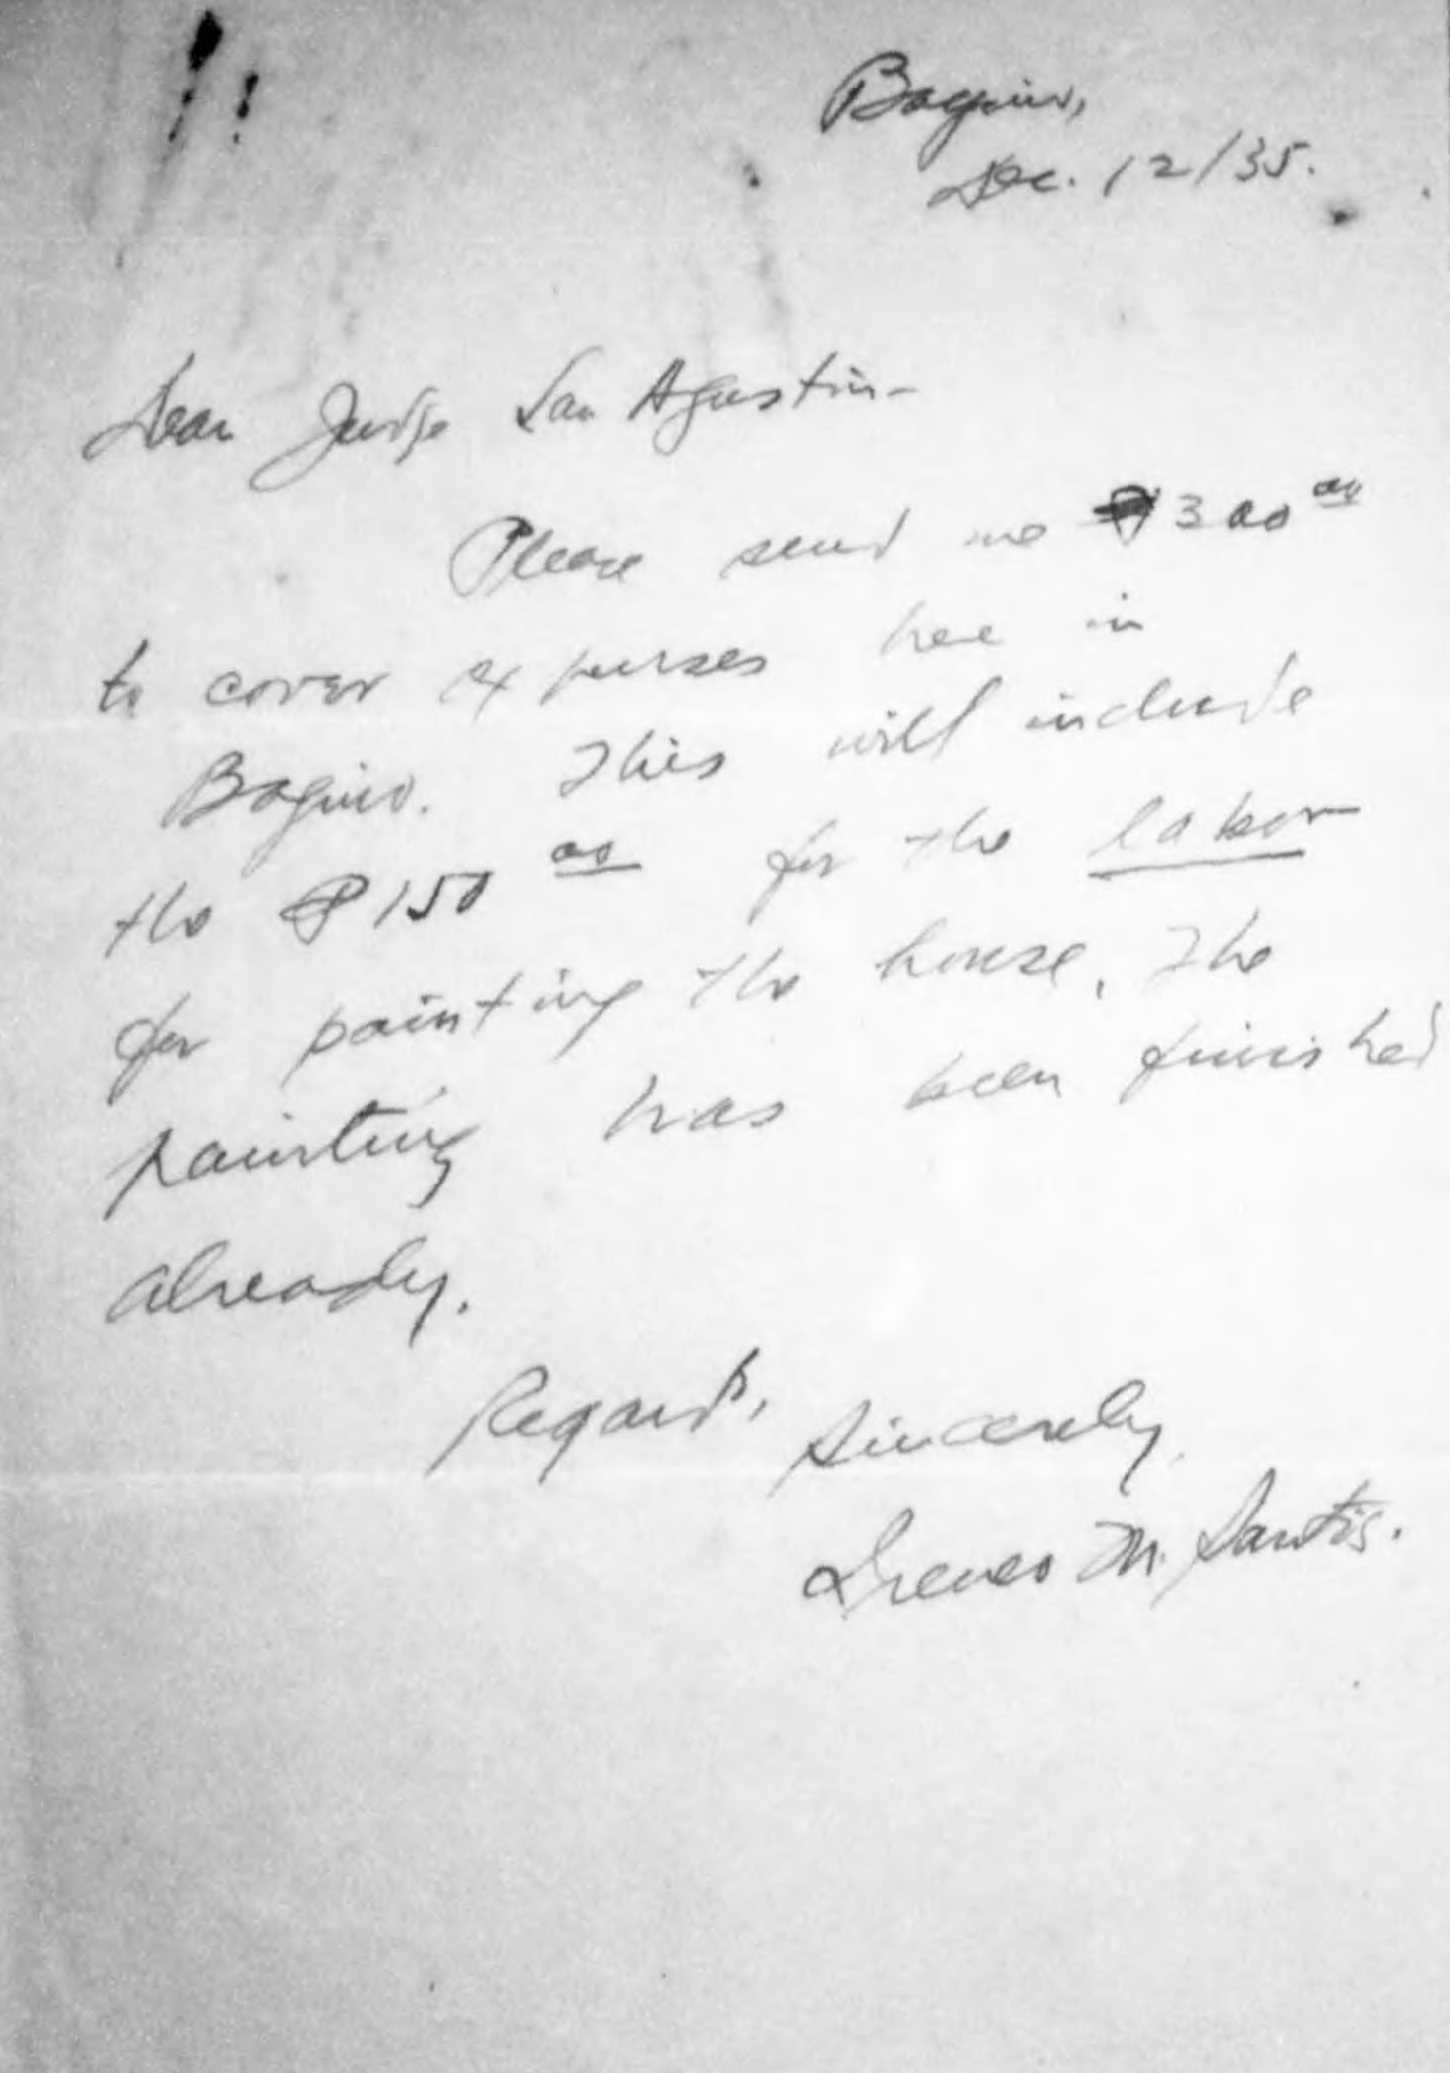 Baguio,
Dec. 12/35.
Dear Judge San Agustin-
Please send me ₱300 00
to cover expenses here in
Baguio. This will include
the ₱150 00 for the labor
for painting the house. The
painting has been finished
already.
Regards,
Sincerely,
Ireneo M. Santos.